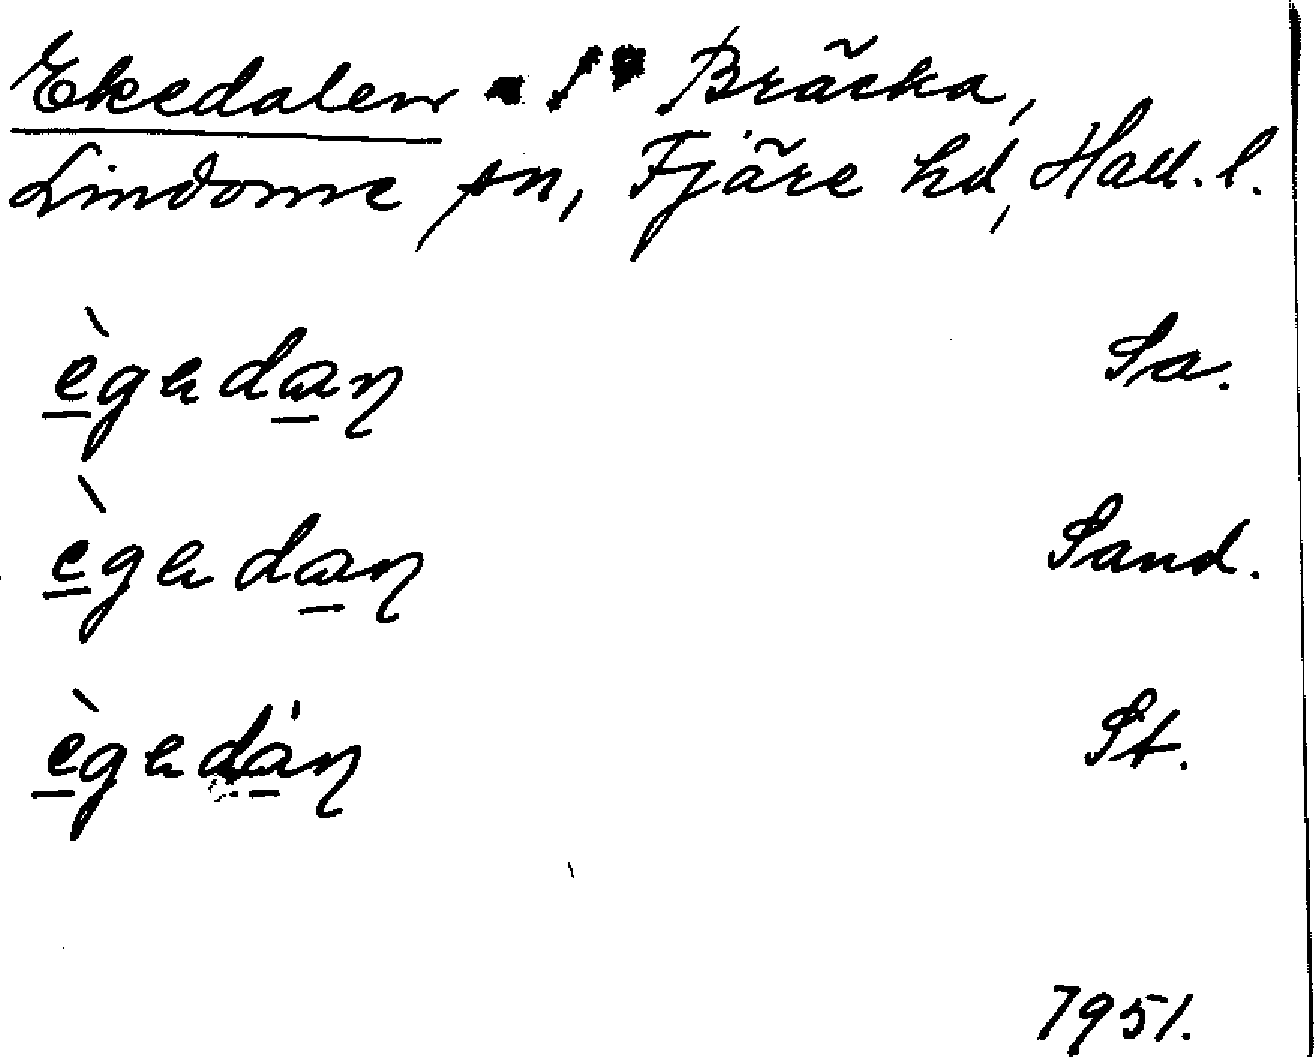 Ekedalen Bräcka,
Lindome sn, Fjäre hd, Hall. l.
ègedan Sa.
ègedan Sand.
ègedan St.
1951.